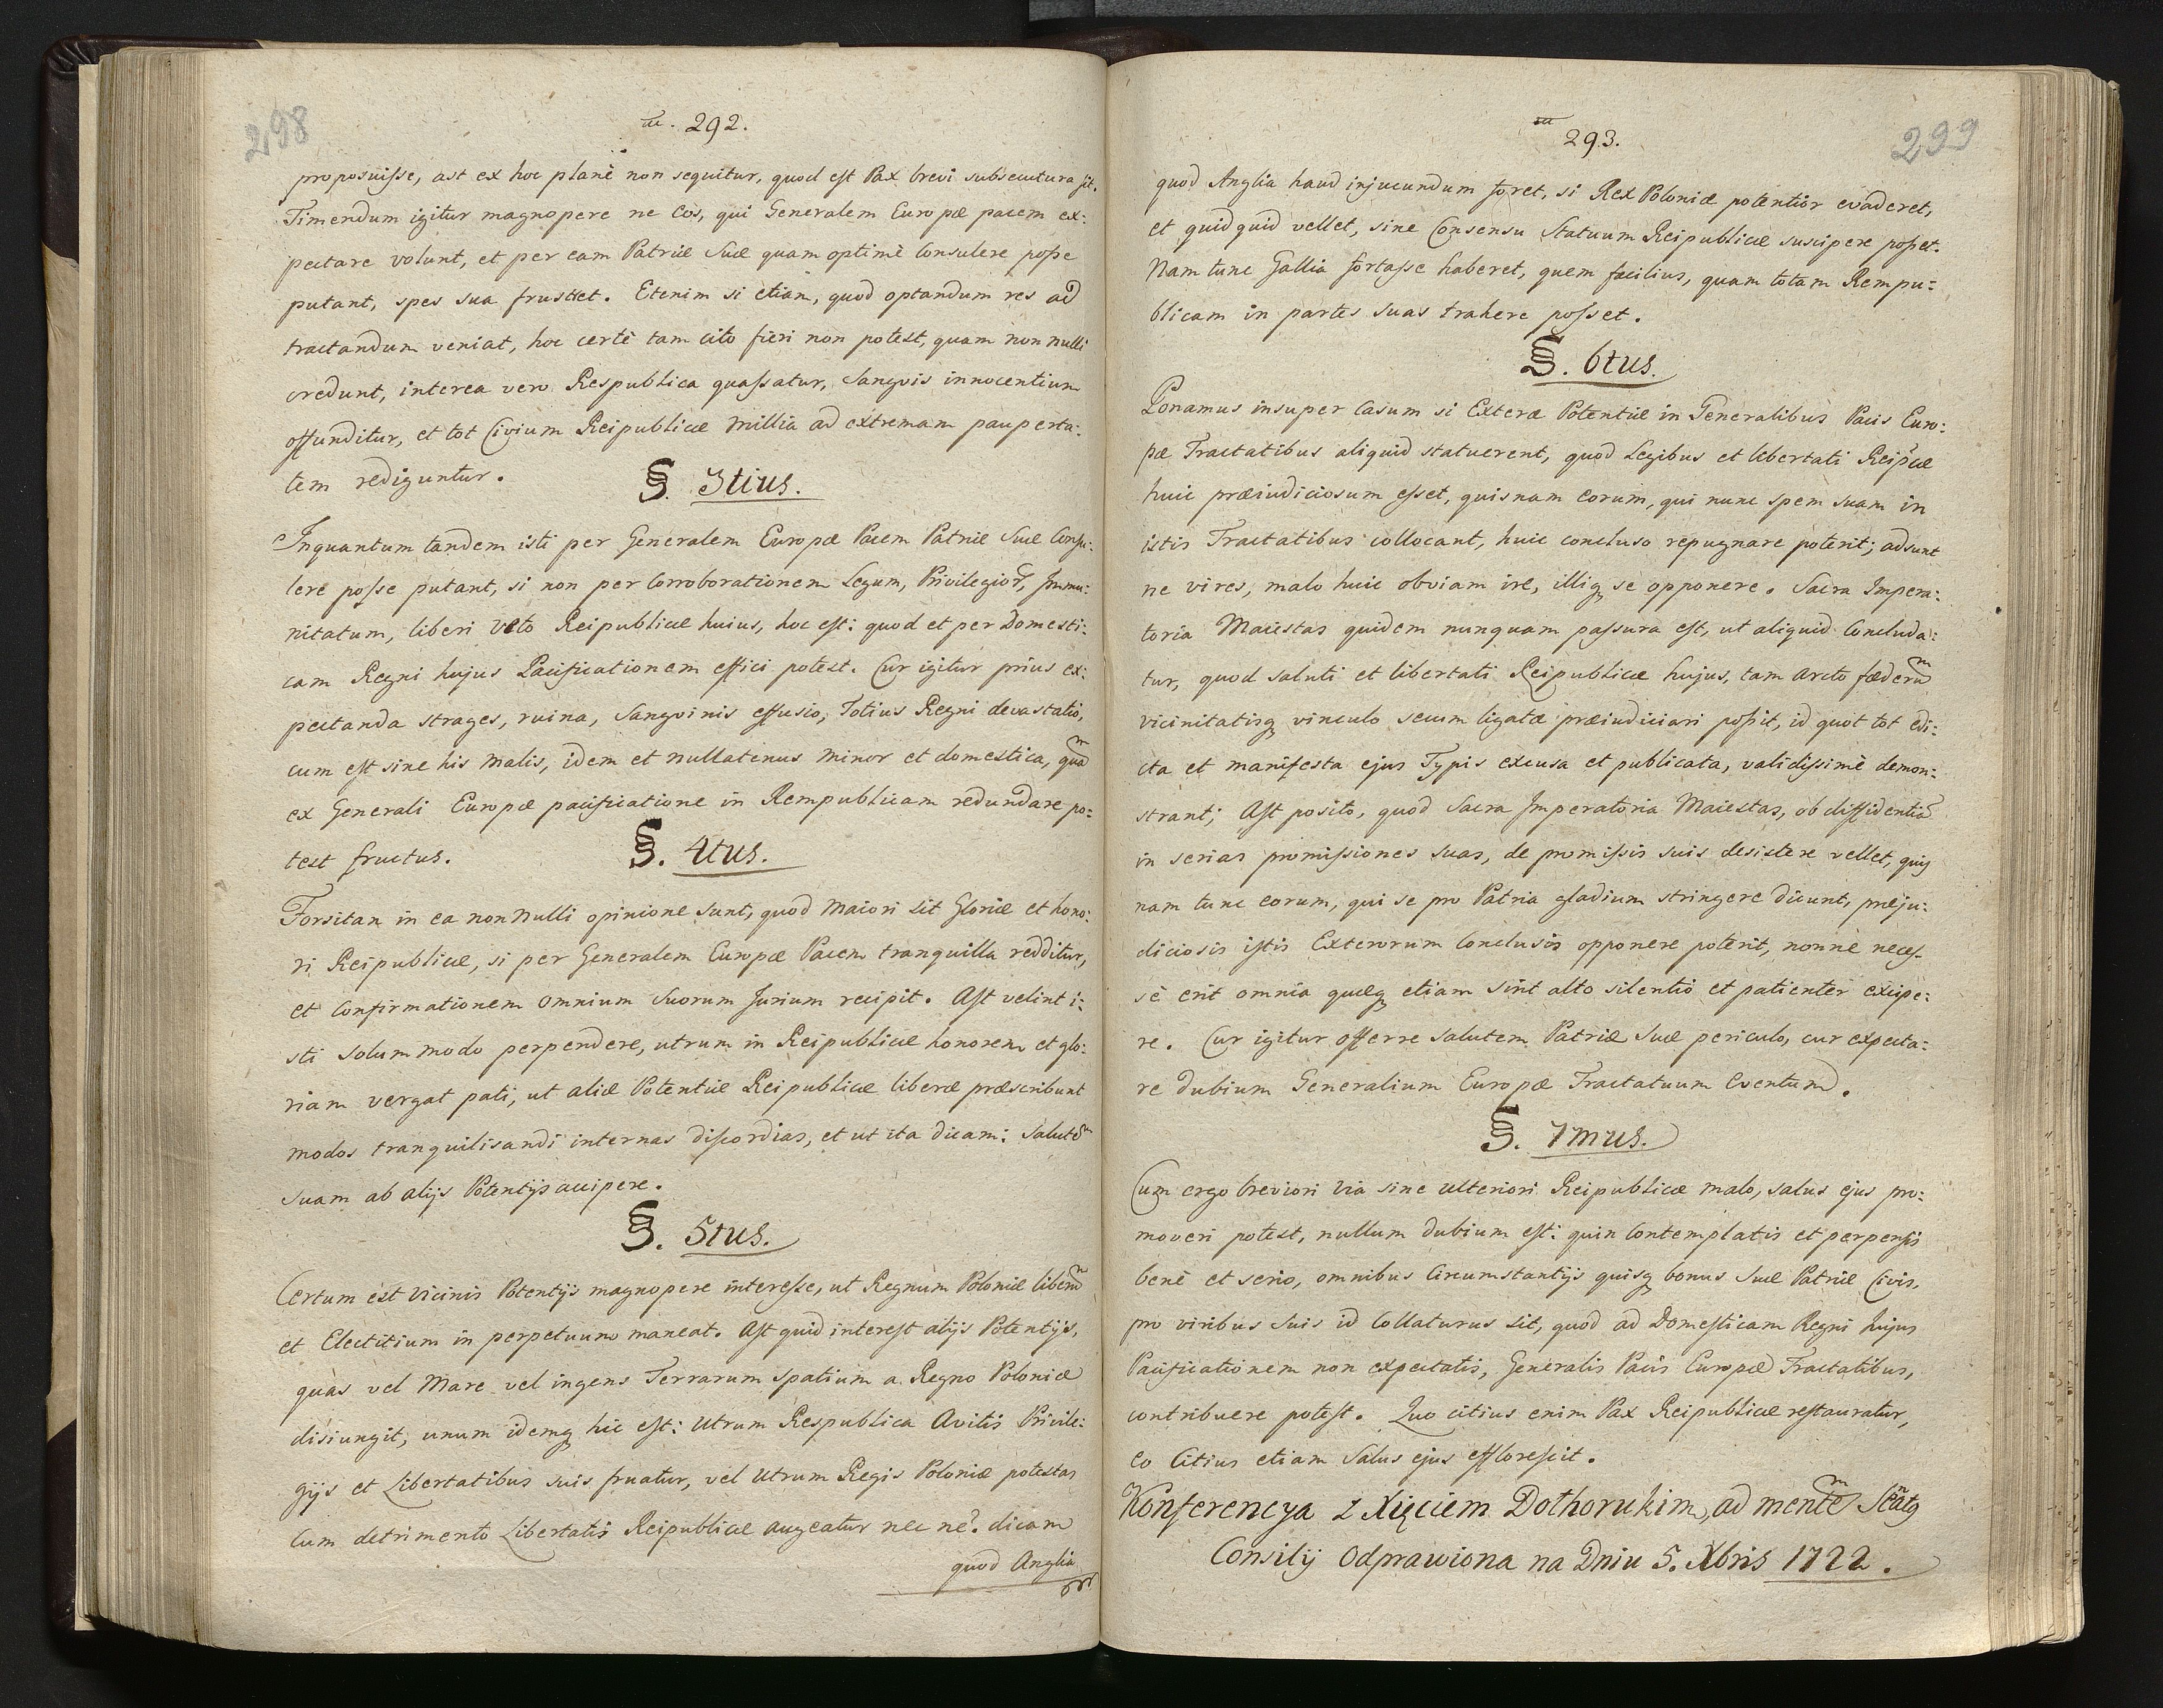 298
292.
proposuisse, ast ex hoc planè non sequitur, quod est Pax brevi subsecutura sit.
Timendum igitur magnopere ne Eos, qui Generalem Europæ pacem ex:
pectare volunt, et per eam Patriæ Suæ quam optimè Consulere posse
putant, spes sua frustret. Etenim si etiam, quod optandum res ad
tractandum veniat, hoc certè tam cito fieri non potest, quam non nulli
credunt, interea vero Respublica quassatur, Sangvis innocentium
offunditur, et tot Civium Reipublicæ millia ad extremam pauperta:
tem rediguntur.
§. 3tius.
Inquantum tandem isti per Generalem Europæ Pacem Patriæ Suæ Consu:
lere posse putant, si non per Corroborationem Legum, Privilegior, Immu:
nitatum, liberi Veto Reipublicæ huius, hoc est: quod et per Domesti:
cam Regni hujus Pacificationem effici potest. Cur igitur prius ex:
pectanda strages, ruina, Sangvinis effusio, Totius Regni devastatio,
cum est sine his malis, idem et nullatenus minor et domestica, quã
ex Generali Europæ pacificatione in Rempublicam redundare po:
test fructus.
§. 4tus.
Forsitan in ea non nulli opinione Sunt, quod Maiori sit Gloriæ et hono:
ri Reipublicæ, si per Generalem Europæ Pacem tranquilla redditur,
et Confirmationem omnium Suorum Jurium recipit. Ast velint i:
sti solummodo perpendere, utrum in Reipublicæ honorem et glo:
riam vergat pati, ut aliæ Potentiæ Reipublicæ liberæ præscribunt
modos tranquilisandi internas discordias, et ut ita dicam: Salutẽ
suam ab alijs Potentijs accipere.
§. 5tus.
Certum est Vicinis Potentijs magnopere interesse, ut Regnum Poloniæ liberũ
et Electitium in perpetuum maneat. Ast quid interest alijs Potentijs,
quas vel Mare vel ingens Terrarum spatium a Regno Poloniæ
disiungit, unum idemq hic est: Utrum Respublica Avitis Privile:
gijs et Libertatibus suis fruatur, vel Utrum Regis Poloniæ potestas
Cum detrimento Libertatis Reipublicæ augeatur nec ne?. dicam
quod Anglia
299
293.
quod Anglia haud injucundum foret, si Rex Poloniæ potentior evaderet,
et quidquid vellet, sine Consensu Statuum Reipublicæ suscipere posset.
Nam tunc Gallia fortasse haberet, quem facilius, quam totam Rempu:
blicam in partes suas trahere posset.
§. 6tus.
Ponamus insuper Casum si Exteræ Potentiæ in Generalibus Pacis Euro:
pæ Tractatibus aliquid statuerent, quod Legibus et libertati Reipcæ
huic præiudiciosum esset, quisnam eorum, qui nunc spem suam in
istis Tractatibus collocant, huic concluso repugnare poterit; adsunt
ne vires, malo huic obviam ire, illiq se opponere. Sacra Impera:
toria Maiestas quidem nunquam passura est, ut aliquid Concluda:
tur, quod saluti et libertati Reipublicæ hujus, tam arcto fæderũ
vicinitatisq vinculo secum ligatæ præiudiciari possit, id quot tot edi:
cta et manifesta ejus Typis excusa et publicata, validissimè demon:
strant; Ast posito, quod Sacra Imperatoria Maiestas, ob diffidentiã
in serias promissiones suas, de promissis suis desistere vellet, quis
nam tunc eorum, qui se pro Patria gladium stringere dicunt, præju:
diciosis istis Exterorum Conclusis opponere poterit, nonnè neces-
sè erit omnia quæq etiam sint alto silentio et patienter excipe:
re. Cur igitur offerre salutem Patriæ Suæ periculo, cur expecta:
re dubium Generalium Europæ Tractatuum Eventum.
§. 7mus.
Cum ergo breviori Via sine ulteriori Reipublicæ malo, salus ejus pro:
moveri potest, nullum dubium est: quin Contemplatis et perpensis
benè et serio, omnibus Circumstantijs quisq bonus Suæ Patriæ Civis,
pro viribus Suis id Collaturus sit, quod ad Domesticam Regni hujus
Pacificationem non expectatis, Generalis Pacis Europæ Tractatibus,
contribuere potest. Quo citius enim Pax Reipublicæ restauratur,
eo Citius etiam Salus ejus efflorescit.
Konferencya z Xięciem Dothorukim, ad mentẽ Senatq
Consilij Odprawiona na Dniu 5. Xbris 1722.